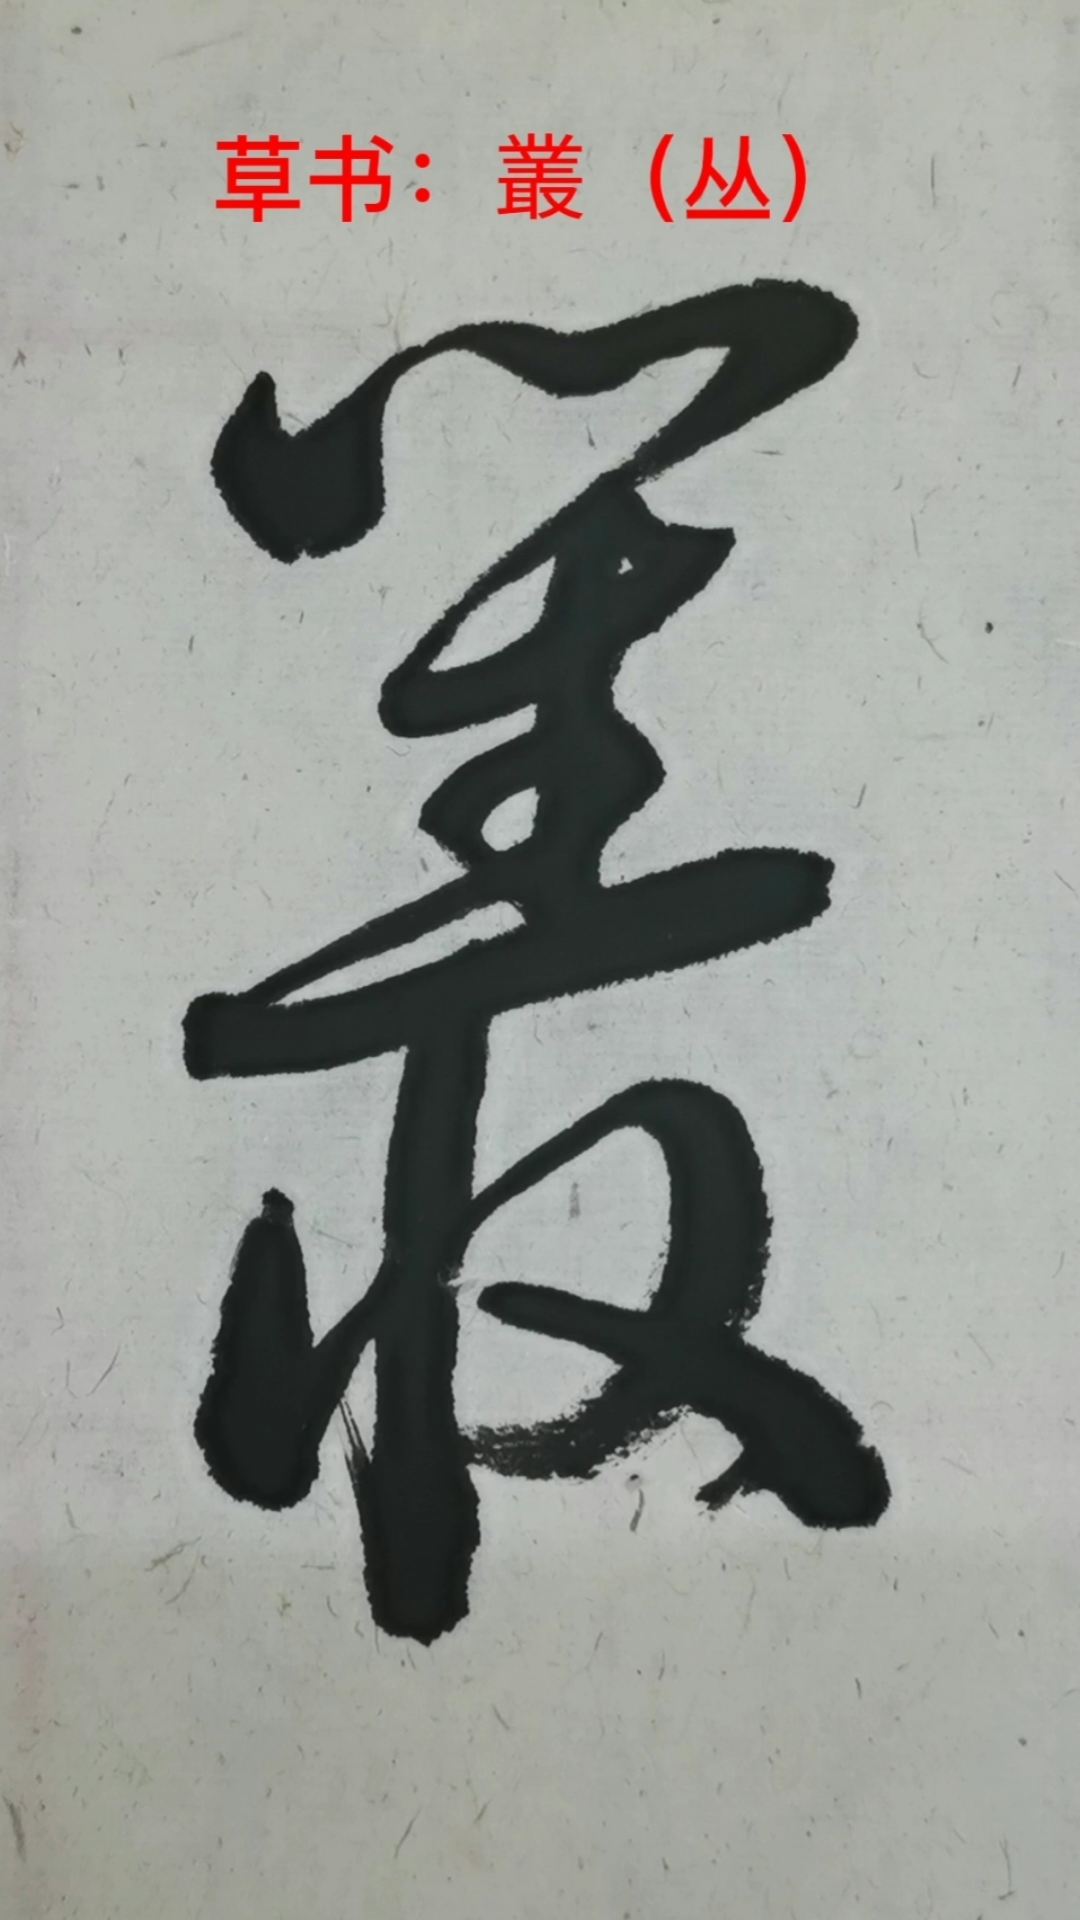 草书：叢（丛）
叢